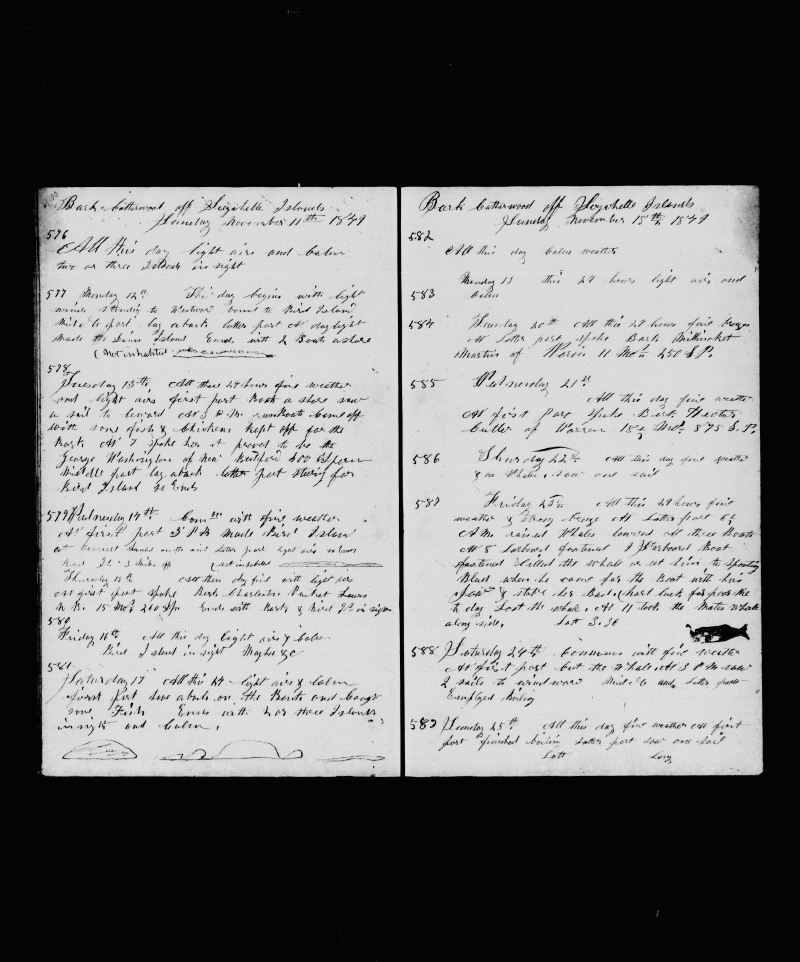 Bark Catterwood off Seychelle Islands
Sunday November 11th 1849
576
All this day light airs and Calm
two or three Islands in sight
577 Monday 12th This day begins with light
winds standing to Westward bound to Bird Island
Middle part lay aback latter part at daylight
made the Island Ends with 2 Boats ashore
(Not inhabited
578
Tuesday 13th All these 24 hours fine weather
and light airs first part Boats a shore saw
a sail to leward At 3 P.M. our Boats Came off
with some fish & Chickens kept off for the
Bark At 7 spoke her it proved to be the
George Washington of New Bedford 400 Sperm
Middle part lay aback latter part stering for
Bird Island So Ends
579 Wednesday 14th Coms with fine weather
At first part 3 P M Made Bird Island
at sunset latter part light airs
(not inhabited
Thursday 15th All these day fine with light airs
At first part spoke Bark Charleston Packet
N.B. 15 Mos 260 Spr Ends with Bark & Bird Id in sight
580
Friday 16th All this day Light airs & Calm
Bird Island in sight
581
Saturday 17 All this 24 light airs & Calm
first part the Boats and
some Fish Ends with 2 or three Islands
in sight and Calm.
Bark Catterwood off Seychelle Islands
Sunday November 18th 1849
582
All this day Calm weather
Monday 19 this 24 hours light airs and
583 Calm
584 Tuesday 20th All this 24 hours fine breeze
At Latter part spoke Bark
Martin of Waren 11 Mos 250 S P.
585 Wednesday 21st
All this day fine weather
At first Part Spoke Bark Hector
Cutler of Warren 15 Mos. 875 S.P.
586 Thursday 22nd All this day fine weather
& no Whales, saw one sail
587 Friday 23rd All this 24 hours fine
weather & Strong breeze At Latter part 6
A Mo raised Whales lowered All three Boats
At 8 Larboard fastened & Starboard Boat
fastened Killed the whale or set him to Spouting
Blood when he came for the Boat with his
& stove her Bad (hard luck for poor Me
to day Lost the whale. At 11 took the Mates whale
along side. Latt 3:36
588 Saturday 24th Commences with fine weather
At first part cut the whale At 3 P M saw
2 sails to windward Middle and Latter part
Employed Boiling
589 Sunday 25th All this day fine weather At first
part finished boiling Latter part saw one sail
Latt Long